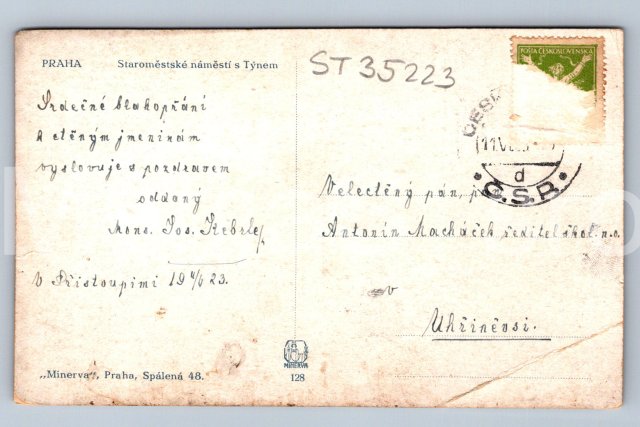 PRAHA Staroměstské náměstí s Týnem
ST 35223
POŠTA ČESKOSLOVENSKÁ
Srdečné blahopřání
k ctěným jmeninám
vyslovuje s pozdravem
oddaný
Mons. Jos. Kebrle
V Přistoupimi 19 23.
11 VI
d
Č.S.P.
Velectěný pán, p
Antonín Macháček ředitel škol. n.o.
v
Uhříněvsi.
„Minerva", Praha, Spálená 48.
MINERVA
128